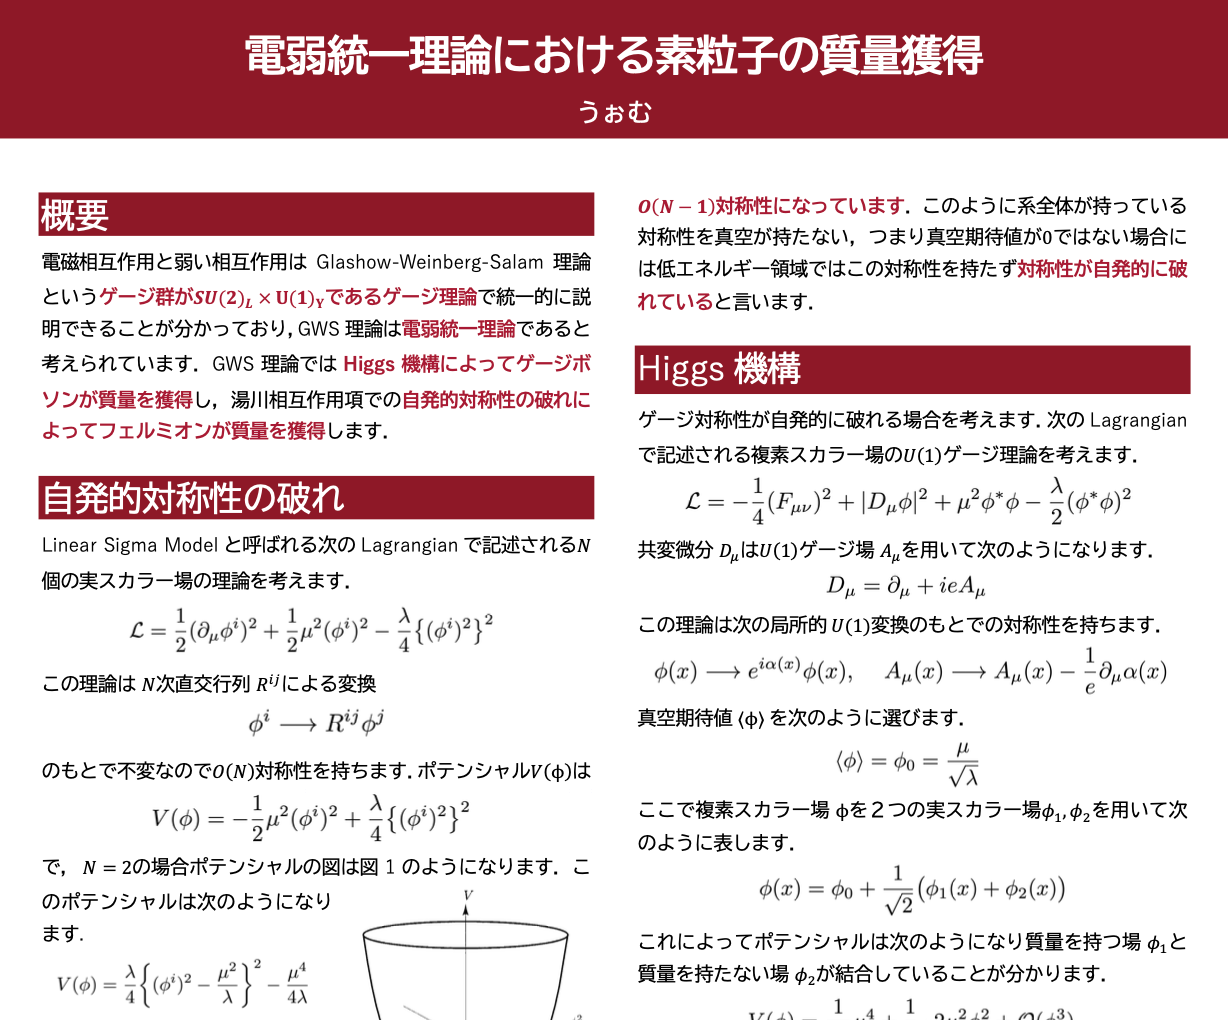 電弱統一理論における素粒子の質量獲得
うぉむ
概要
電磁相互作用と弱い相互作用は Glashow-Weinberg-Salam 理論
というゲージ群がSU(2)_L × U(1)_Yであるゲージ理論で統一的に説
明できることが分かっており, GWS 理論は電弱統一理論であると
考えられています． GWS 理論では Higgs 機構によってゲージボ
ソンが質量を獲得し，湯川相互作用項での自発的対称性の破れに
よってフェルミオンが質量を獲得します．
自発的対称性の破れ
Linear Sigma Model と呼ばれる次の Lagrangian で記述されるN
個の実スカラー場の理論を考えます．
ℒ = 1/2 (∂_μ φ^i)^2 + 1/2 μ^2 (φ^i)^2 − λ/4 {(φ^i)^2}^2
この理論は N次直交行列 R^{ij}による変換
φ^i ⟶ R^{ij} φ^j
のもとで不変なのでO(N)対称性を持ちます. ポテンシャルV(φ)は
V(φ) = −1/2 μ^2 (φ^i)^2 + λ/4 {(φ^i)^2}^2
で， N = 2の場合ポテンシャルの図は図 1 のようになります．こ
のポテンシャルは次のようになり
ます.
V(φ) = λ/4 {(φ^i)^2 − μ^2/λ}^2 − μ^4/4λ
V
O(N − 1)対称性になっています．このように系全体が持っている
対称性を真空が持たない，つまり真空期待値が0ではない場合に
は低エネルギー領域ではこの対称性を持たず対称性が自発的に破
れていると言います．
Higgs 機構
ゲージ対称性が自発的に破れる場合を考えます. 次の Lagrangian
で記述される複素スカラー場のU(1)ゲージ理論を考えます．
ℒ = −1/4 (F_{μν})^2 + |D_μ φ|^2 + μ^2 φ*φ − λ/2 (φ*φ)^2
共変微分 D_μはU(1)ゲージ場 A_μを用いて次のようになります．
D_μ = ∂_μ + ieA_μ
この理論は次の局所的 U(1)変換のもとでの対称性を持ちます．
φ(x) ⟶ e^{iα(x)} φ(x), A_μ(x) ⟶ A_μ(x) − 1/e ∂_μ α(x)
真空期待値 ⟨φ⟩ を次のように選びます．
⟨φ⟩ = φ_0 = μ/√λ
ここで複素スカラー場 φを２つの実スカラー場φ_1, φ_2を用いて次
のように表します．
φ(x) = φ_0 + 1/√2 (φ_1(x) + φ_2(x))
これによってポテンシャルは次のようになり質量を持つ場 φ_1と
質量を持たない場 φ_2が結合していることが分かります．